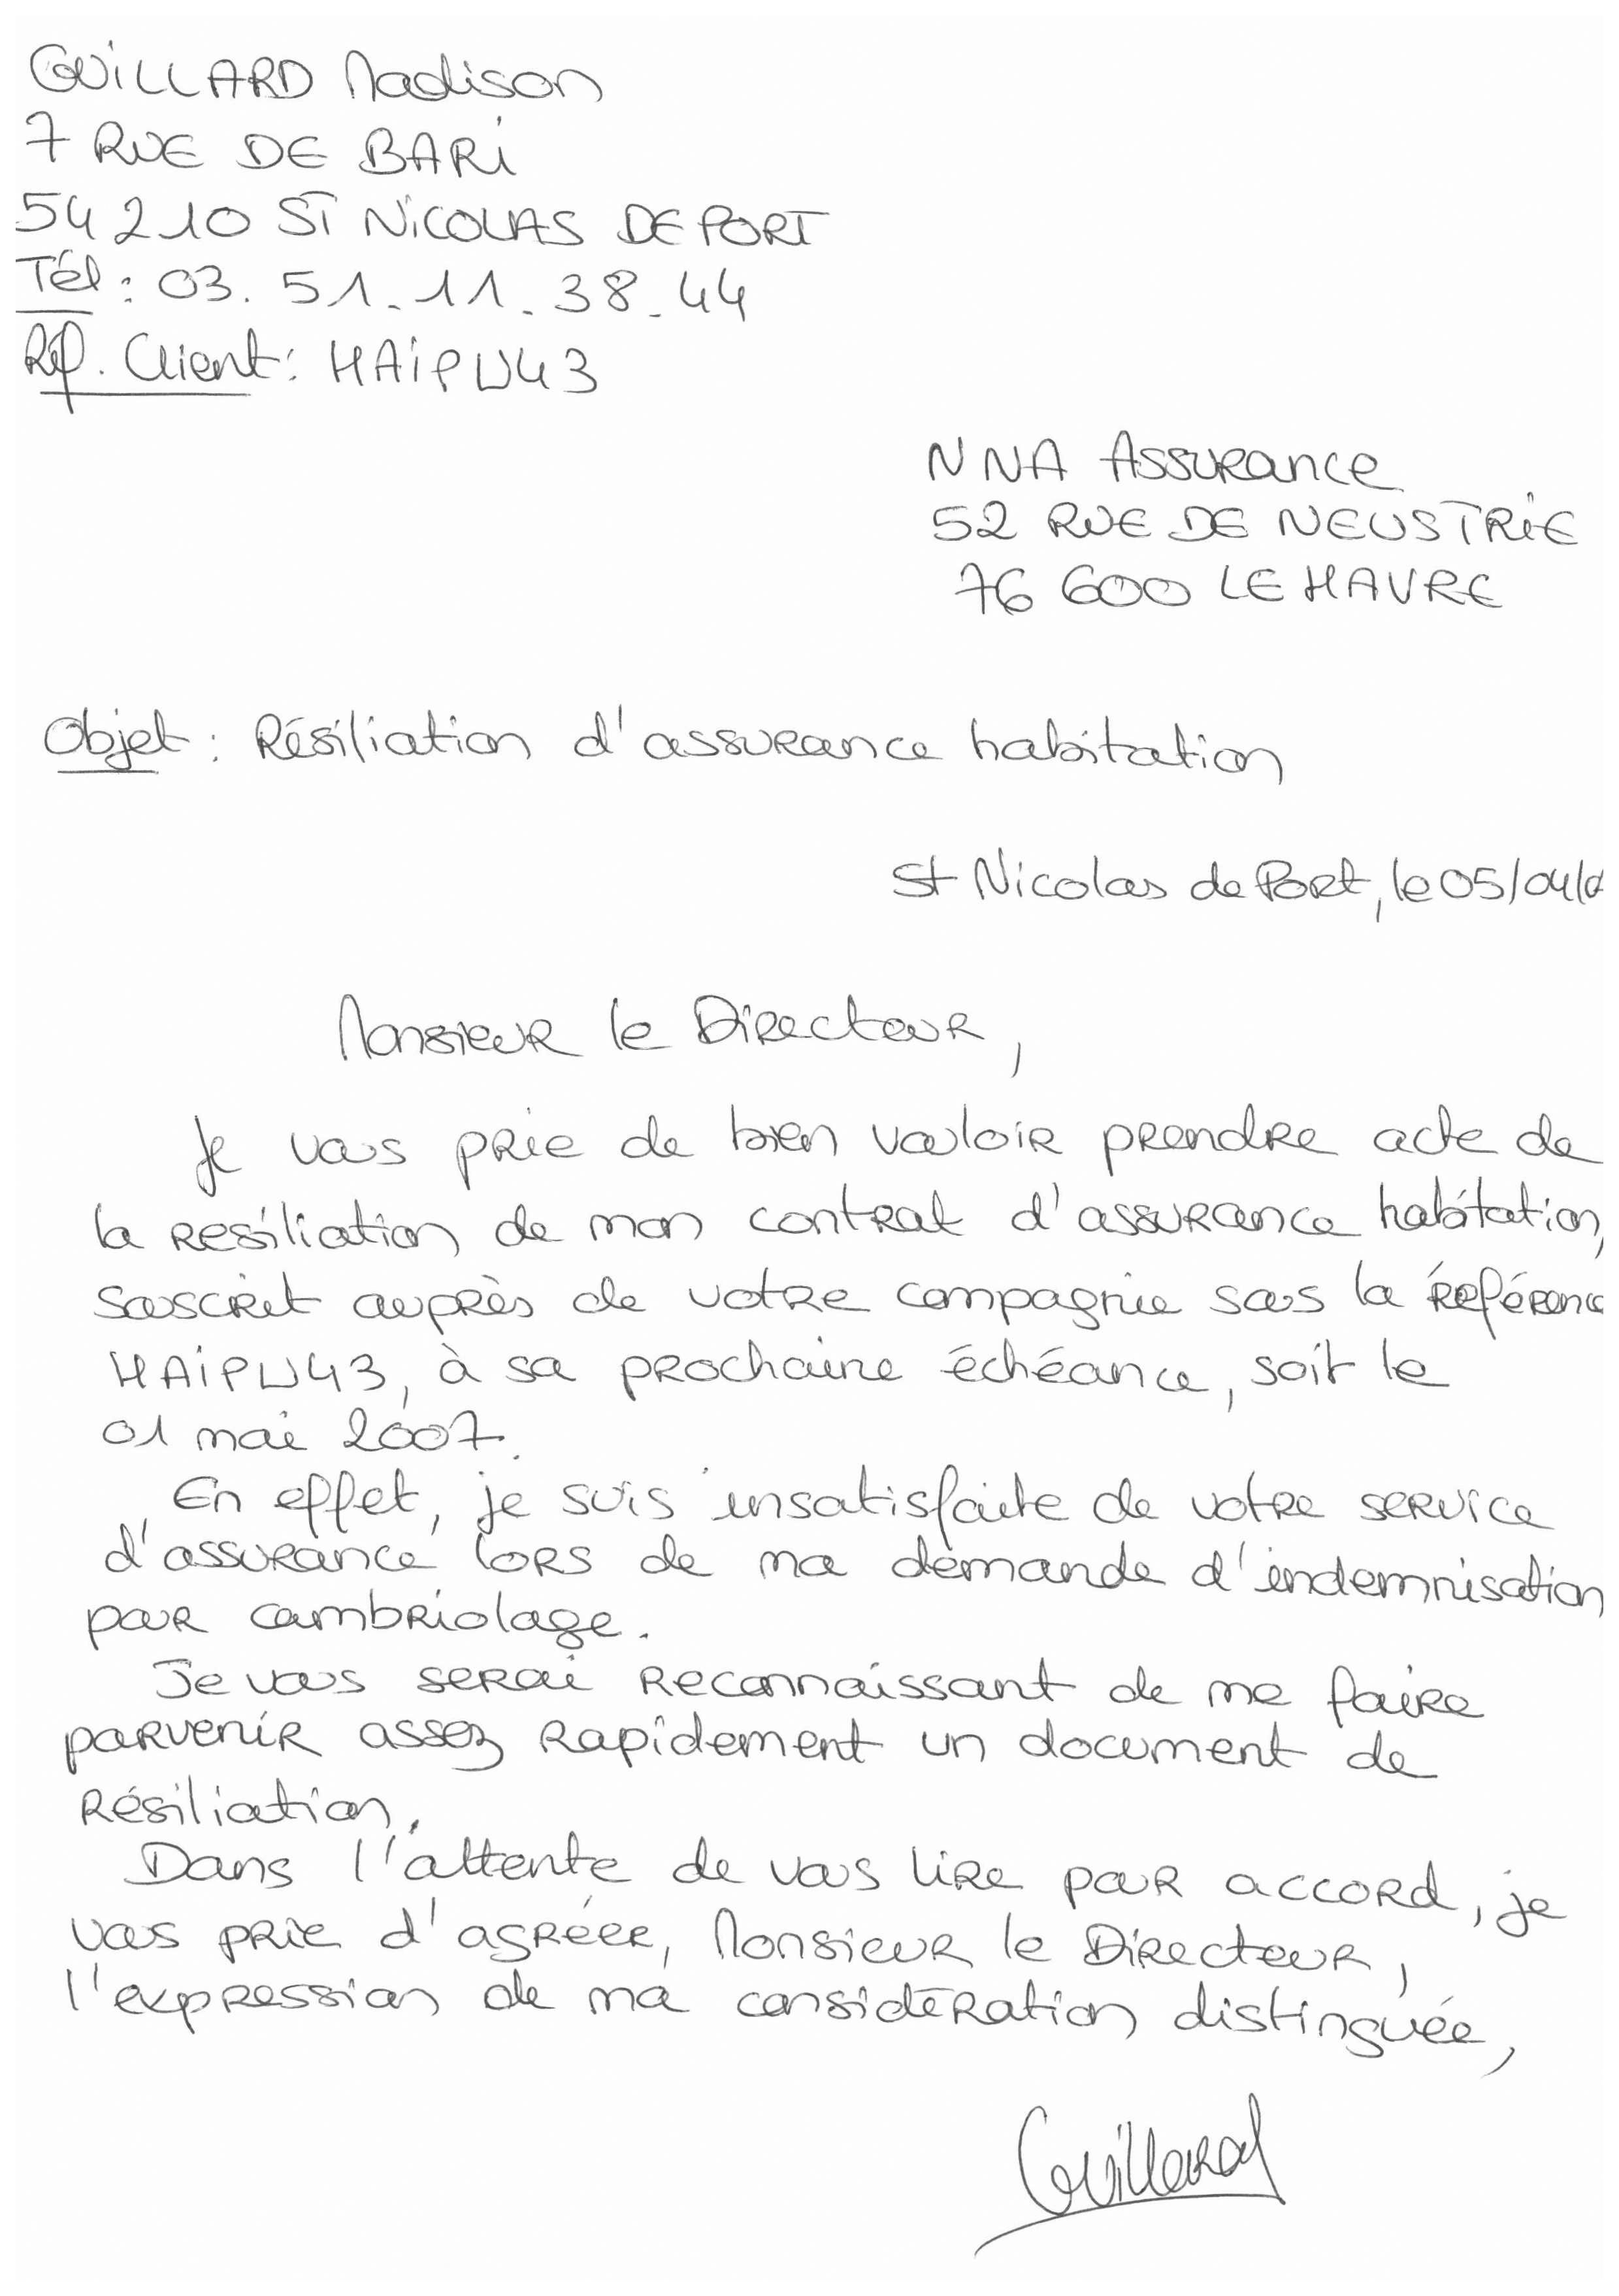 GUILLARD Madison
7 RUE DE BARi
54210 ST NiCOLAS DE PORT
Tél : 03. 51. 11. 38. 44
Réf. Client : HAiPW43
NNA Assurance
52 RUE DE NEUSTRiE
76 600 LE HAVRE
Objet : Résiliation d'assurance habitation
St Nicolas de Port, le 05/04/0
Monsieur le Directeur,
Je vous prie de bien vouloir prendre acte de
la resiliation de mon contrat d'assurance habitation,
souscrit auprès de votre compagnie sous la référenc
HAiPW43, à sa prochaine échéance, soit le
01 mai 2007.
En effet, je suis insatisfaite de votre service
d'assurance lors de ma demande d'indemnisation
pour cambriolage.
Je vous serai reconnaissant de me faire
parvenir assez rapidement un document de
résiliation.
Dans l'attente de vous lire pour accord, je
vous prie d'agréer, Monsieur le Directeur,
l'expression de ma considération distinguée,
Guillard